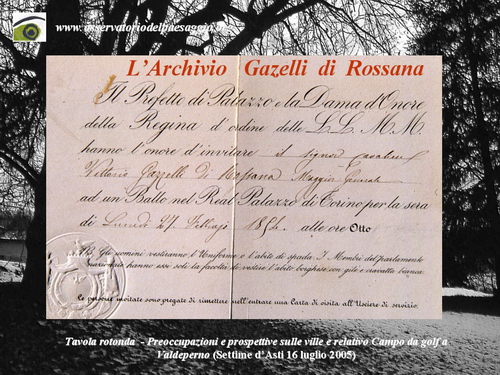 www.osservatoriodelpaesaggio.
L'Archivio Gazelli di Rossana
Il Prefetto di Palazzo e la Dama d'Onore
della Regina d'ordine delle L.L. M.M.
hanno l'onore d'invitare il Signor
Vittorio Gazzelli di Rossana Maggior Generale
ad un Ballo nel Real Palazzo di Torino per la sera
di Lunedì 27 1854 alle ore Otto
NB. Gli uomini vestiranno l'Uniforme o l'abito di spada. I Membri del parlamento
nazionale hanno essi soli la facoltà di vestire l'abito borghese con gilè e cravatta bianca.
Le persone invitate sono pregate di rimettere nell'entrare una Carta di visita all'Usciere di servizio.
Tavola rotonda - Preoccupazioni e prospettive sulle ville e relativo Campo da golf a
Valdeperno (Settime d'Asti 16 luglio 2005)